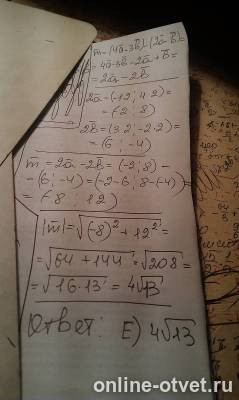 m̄ = (4ā-3b̄)-(2ā-b̄)=
= 4ā-3b̄-2ā+b̄=
= 2ā-2b̄
2ā=(-1·2; 4·2)=
=(-2; 8)
2b̄=(3·2; -2·2)=
=(6; -4)
m̄ = 2ā-2b̄=(-2; 8)-
-(6; -4)=(-2-6; 8-(-4))=
=(-8; 12)
|m̄|=√(-8)²+12²=
=√64+144=√208=
=√16·13=4√13
Ответ: E) 4√13
online-otvet.ru